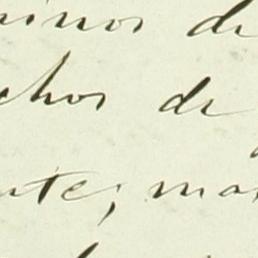 minos de
chos de
nte; mas